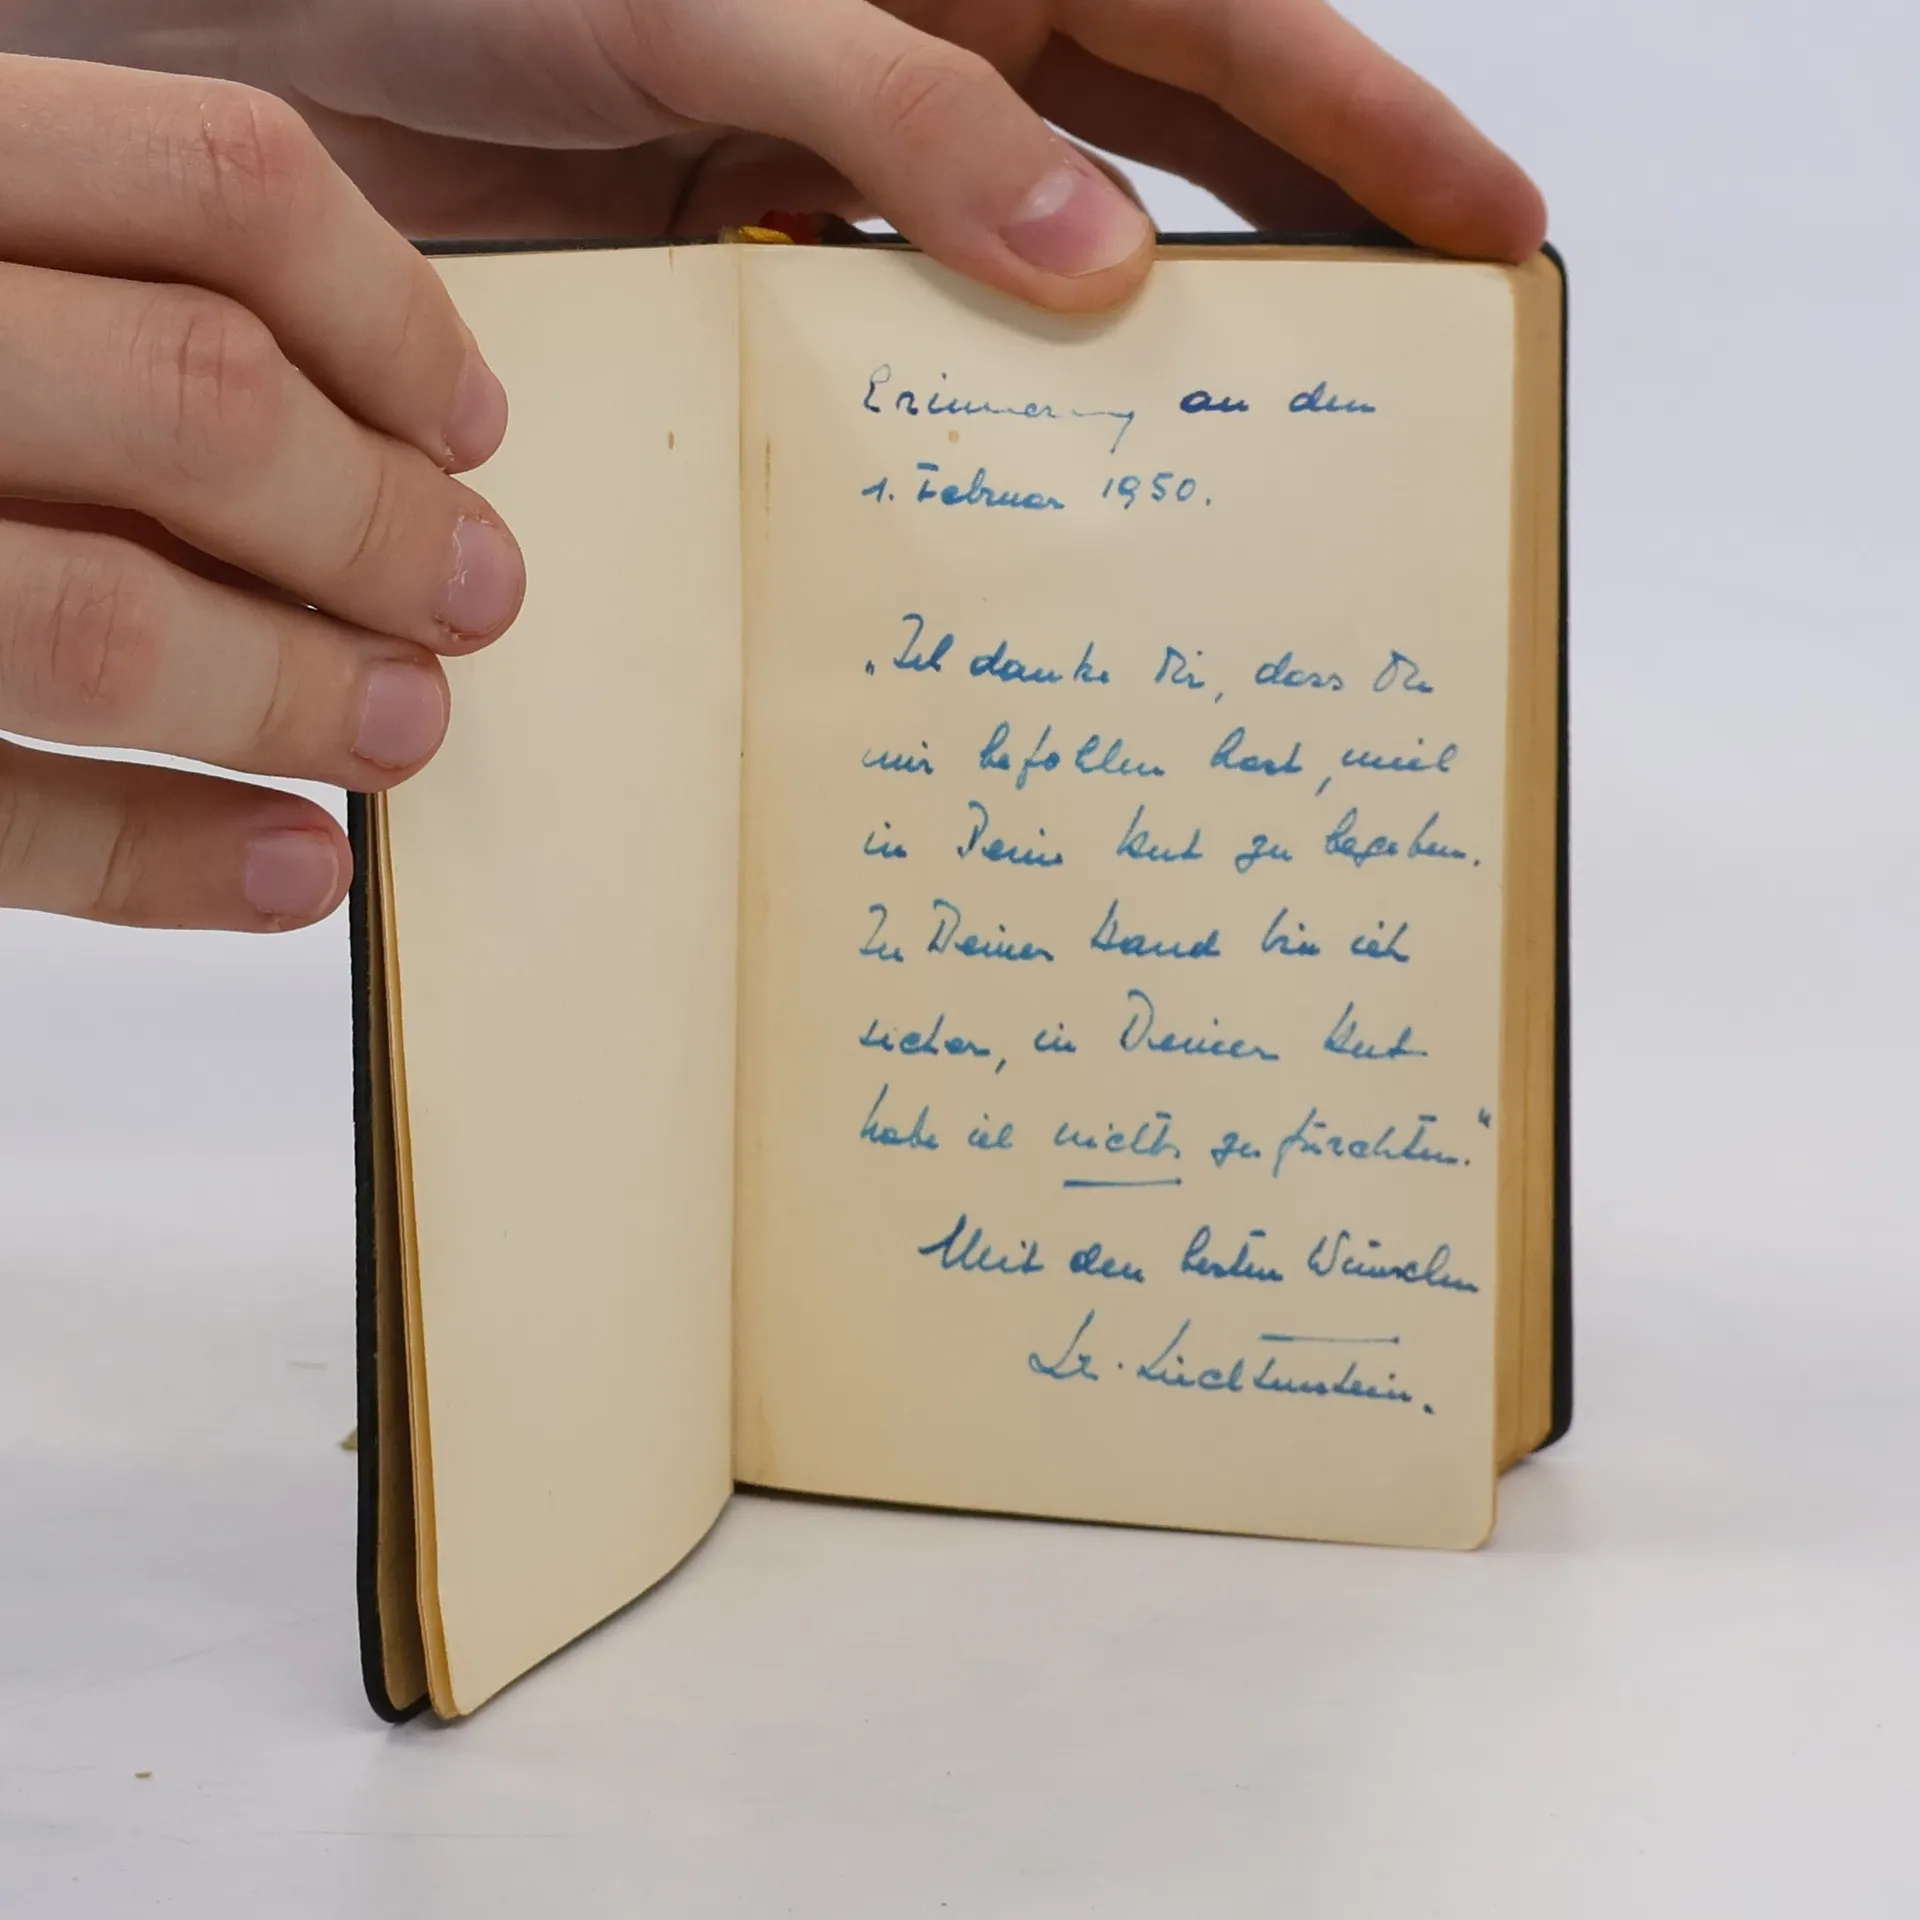 Erinnerung an den
1. Februar 1950.
„Ich danke Dir, dass Du
mir befohlen hast, mich
in Deine Hut zu begeben.
In Deiner Hand bin ich
sicher, in Deiner Hut
habe ich nichts zu fürchten.“
Mit den besten Wünschen
Liechtenstein.